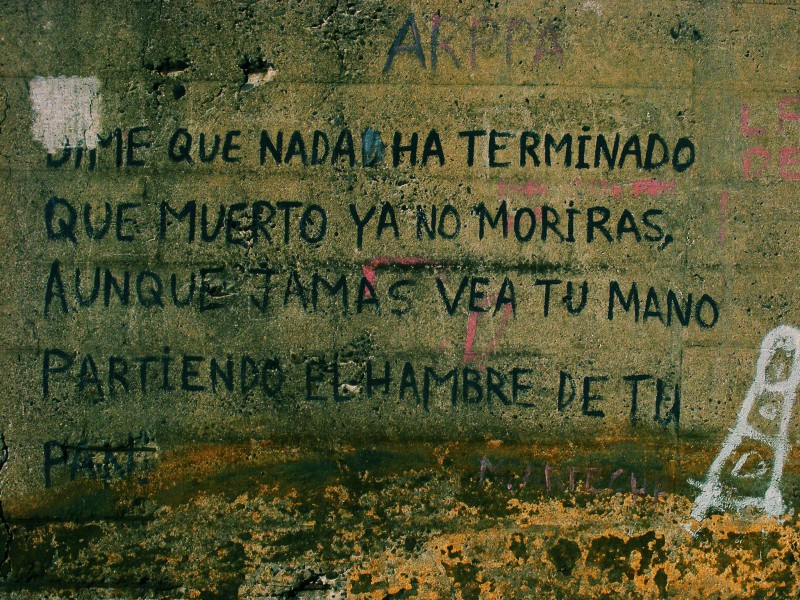 ARPPA
DIME QUE NADA HA TERMINADO
QUE MUERTO YA NO MORIRAS,
AUNQUE JAMAS VEA TU MANO
PARTIENDO EL HAMBRE DE TU
PAN.